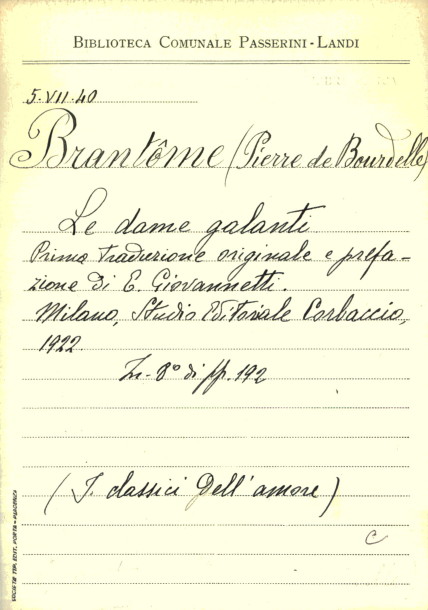 BIBLIOTECA COMUNALE PASSERINI-LANDI
5.VII.40
Brantôme (Pierre de Bourdelle)
Le dame galanti
Prima traduzione originale e prefa-
zione di E. Giovannetti.
Milano, Studio Editoriale Corbaccio,
1922.
In-8° di pp. 192
(I classici dell'amore)
C